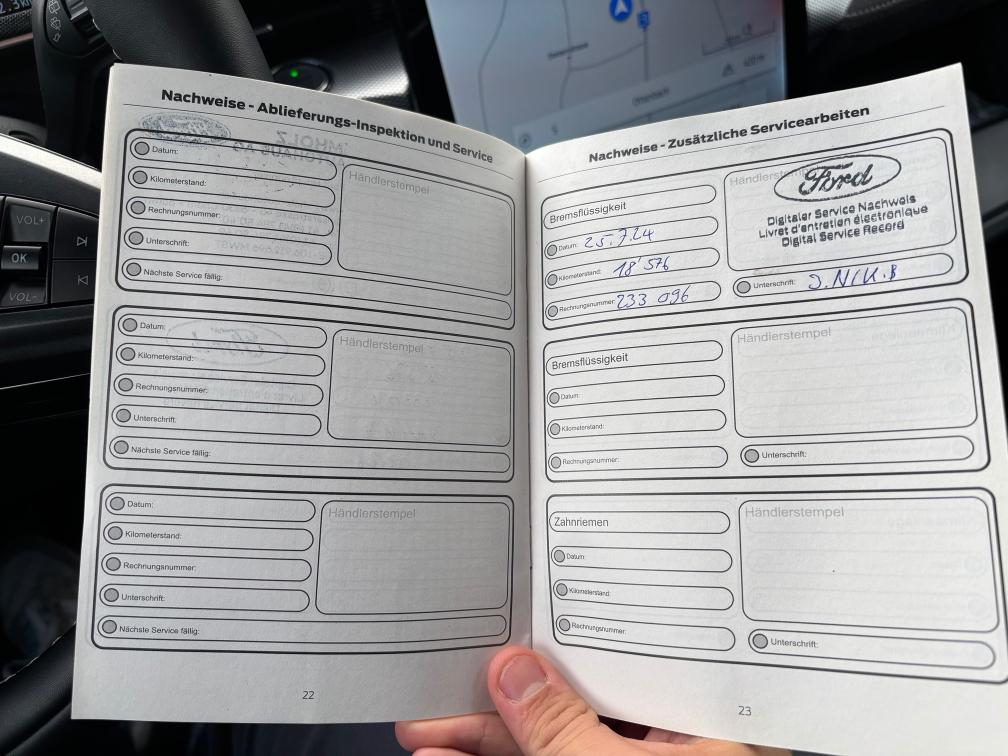 VOL+
OK
VOL-
Nachweise - Ablieferungs-Inspektion und Service
Datum:
Kilometerstand:
Rechnungsnummer:
Unterschrift:
Nächste Service fällig:
Händlerstempel
Datum:
Kilometerstand:
Rechnungsnummer:
Unterschrift:
Nächste Service fällig:
Händlerstempel
Datum:
Kilometerstand:
Rechnungsnummer:
Unterschrift:
Nächste Service fällig:
Händlerstempel
22
Nachweise - Zusätzliche Servicearbeiten
Bremsflüssigkeit
Datum: 25.7.24
Kilometerstand: 18'576
Rechnungsnummer: 233 096
Ford
Digitaler Service Nachweis
Livret d'entretien électronique
Digital Service Record
Unterschrift:
Bremsflüssigkeit
Datum:
Kilometerstand:
Rechnungsnummer:
Händlerstempel
Unterschrift:
Zahnriemen
Datum:
Kilometerstand:
Rechnungsnummer:
Händlerstempel
Unterschrift:
23